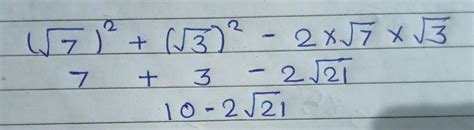 (√7)² + (√3)² - 2×√7×√3
7 + 3 - 2√21
10-2√21